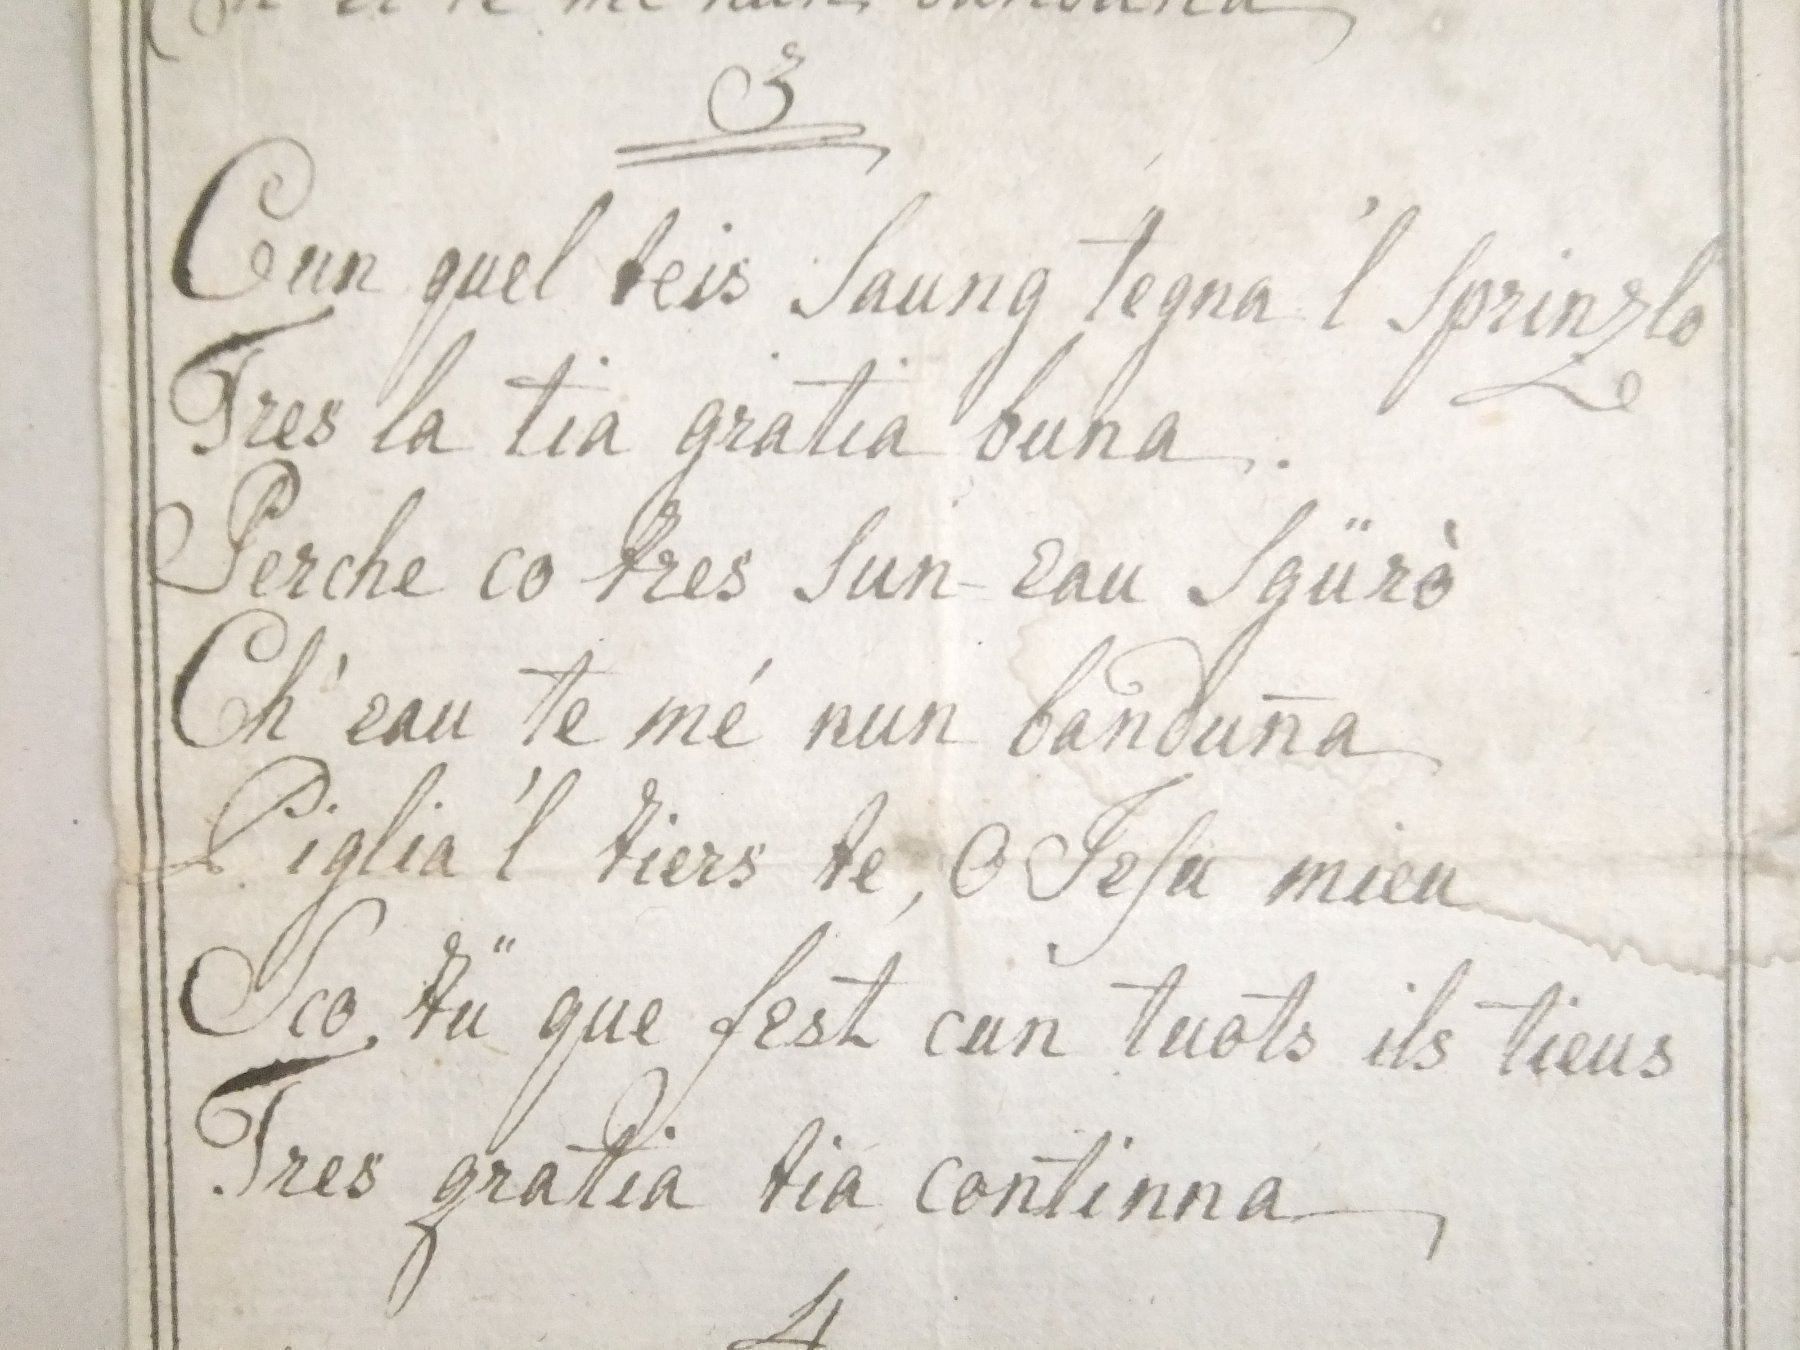 te me nun banduna
3
Cun quel teis Saung tegna 'l Sprinzlo
Tres la tia gratia buna.
Perche co tres Sun-eau Sgürò
Ch'eau te mé nun banduña
Piglia 'l tiers te, O Jesu mieu
Sco tü que fest cun tuots ils tieus
Tres gratia tia continna
4